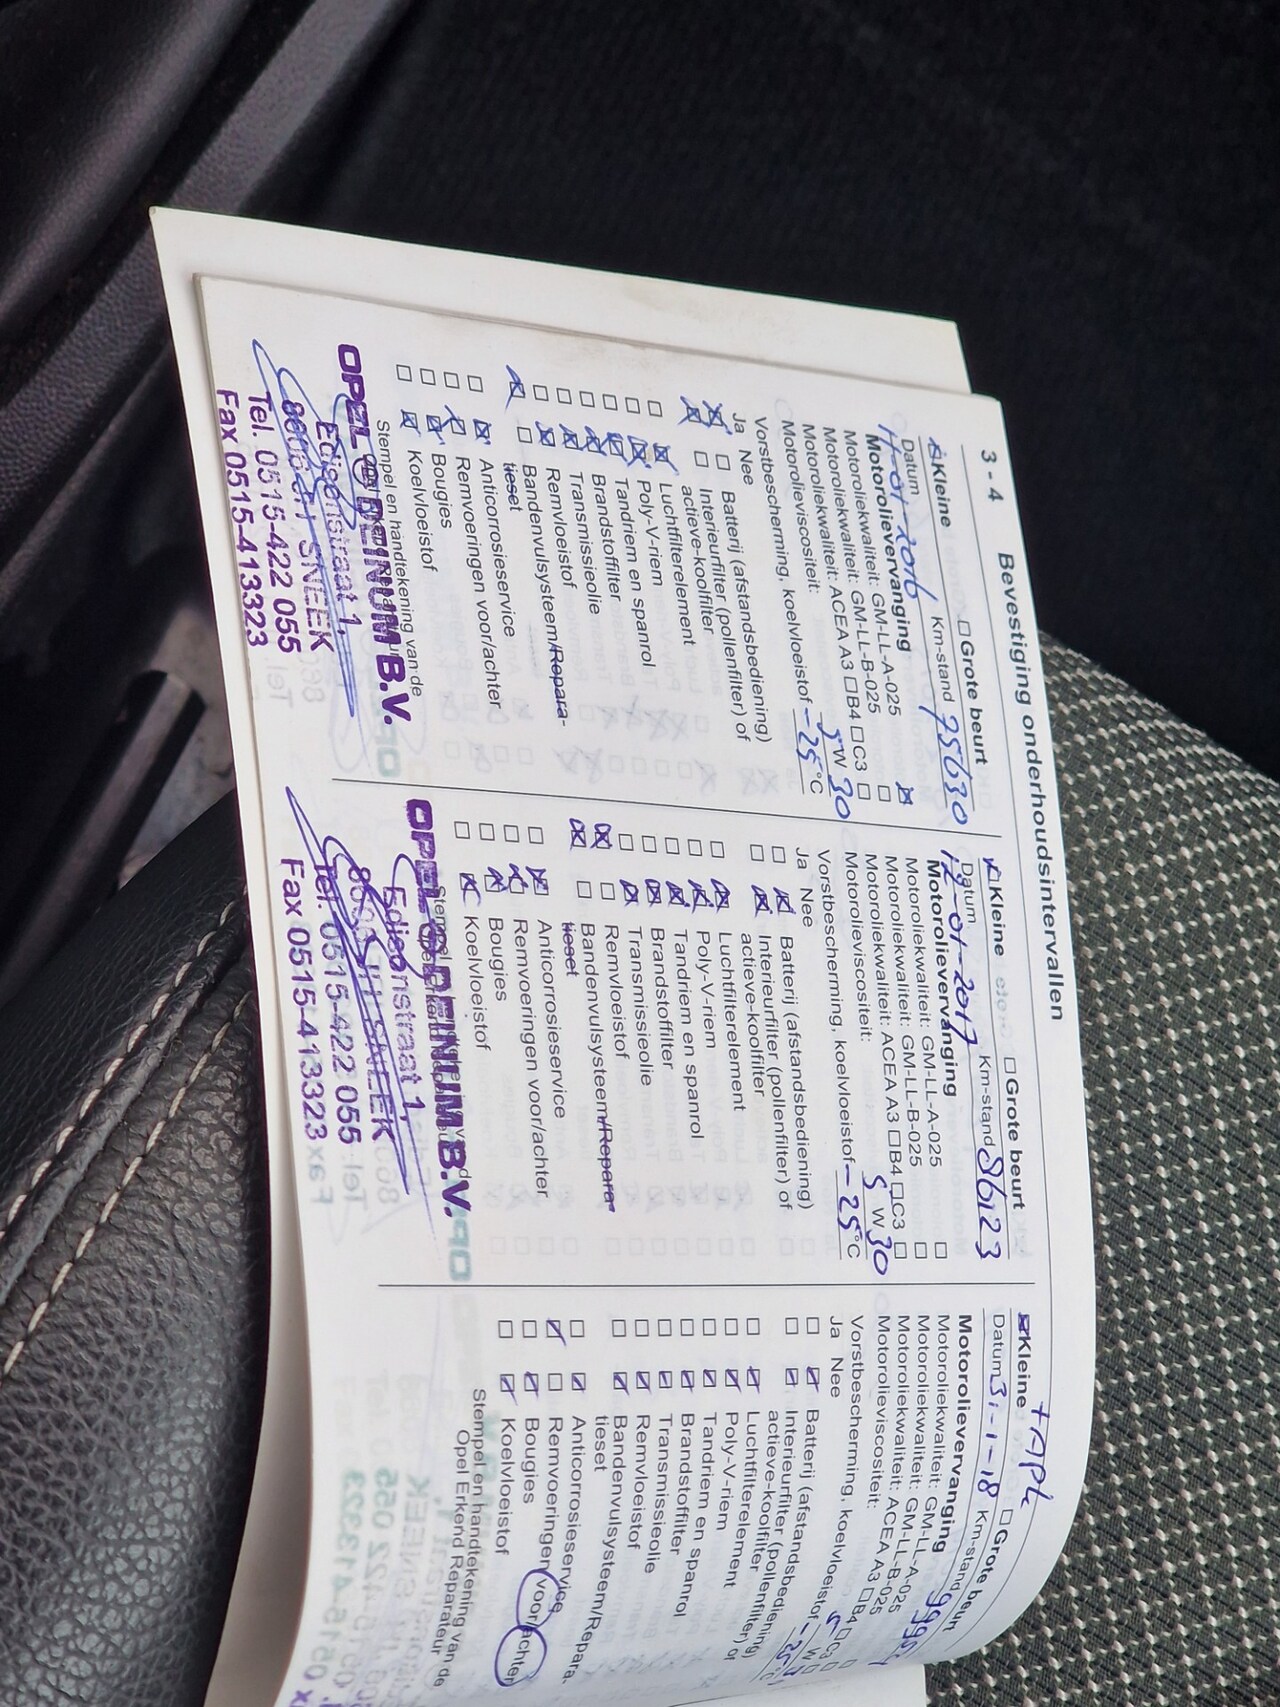 3 - 4 Bevestiging onderhoudsintervallen
Kleine Grote beurt
Datum 11-01-2016 Km-stand 75630
Motorolievervanging
Motoroliekwaliteit: GM-LL-A-025
Motoroliekwaliteit: GM-LL-B-025
Motoroliekwaliteit: ACEA A3 B4 C3
Motorolieviscositeit: 5 W 30
Vorstbescherming, koelvloeistof -25 °C
Ja Nee
Batterij (afstandsbediening)
Interieurfilter (pollenfilter) of
actieve-koolfilter
Luchtfilterelement
Poly-V-riem
Tandriem en spanrol
Brandstoffilter
Transmissieolie
Remvloeistof
Bandenvulsysteem/Repara-
tieset
Anticorrosieservice
Remvoeringen voor/achter
Bougies
Koelvloeistof
Stempel en handtekening van de
OPEL DEINUM B.V.
Edisonstraat 1,
SNEEK
Tel. 0515-422 055
Fax 0515-413323
Kleine Grote beurt
Datum 12-01-2017 Km-stand 86123
Motorolievervanging
Motoroliekwaliteit: GM-LL-A-025
Motoroliekwaliteit: GM-LL-B-025
Motoroliekwaliteit: ACEA A3 B4 C3
Motorolieviscositeit: 5 W 30
Vorstbescherming, koelvloeistof -25 °C
Ja Nee
Batterij (afstandsbediening)
Interieurfilter (pollenfilter) of
actieve-koolfilter
Luchtfilterelement
Poly-V-riem
Tandriem en spanrol
Brandstoffilter
Transmissieolie
Remvloeistof
Bandenvulsysteem/Repara-
tieset
Anticorrosieservice
Remvoeringen voor/achter
Bougies
Koelvloeistof
OPEL DEINUM B.V.
Edisonstraat 1,
SNEEK
Tel. 0515-422 055
Fax 0515-413323
Kleine + APK Grote beurt
Datum 31-1-18 Km-stand
Motorolievervanging
Motoroliekwaliteit: GM-LL-A-025
Motoroliekwaliteit: GM-LL-B-025
Motoroliekwaliteit: ACEA A3 B4 C3
Motorolieviscositeit: 5 W
Vorstbescherming, koelvloeistof -25 °C
Ja Nee
Batterij (afstandsbediening)
Interieurfilter (pollenfilter) of
actieve-koolfilter
Luchtfilterelement
Poly-V-riem
Tandriem en spanrol
Brandstoffilter
Transmissieolie
Remvloeistof
Bandenvulsysteem/Repara-
tieset
Anticorrosieservice
Remvoeringen voor/achter
Bougies
Koelvloeistof
Stempel en handtekening van de
Opel Erkend Reparateur